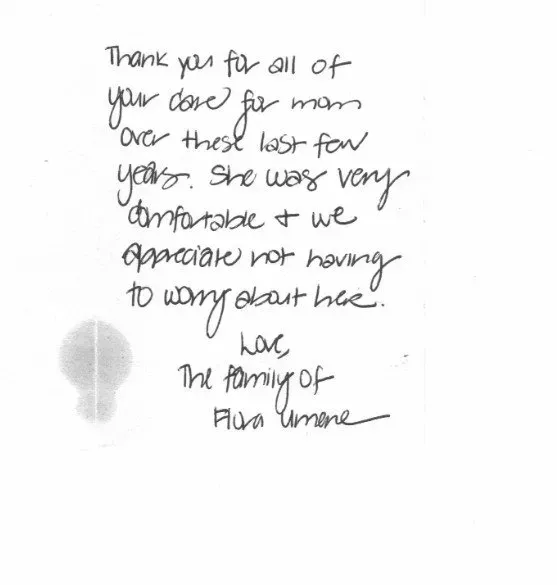 Thank you for all of
your care for mom
over these last few
years. She was very
comfortable & we
appreciate not having
to worry about here.
Love,
The family of
Flora Umene